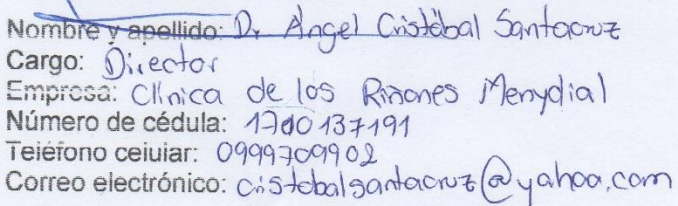 Nombre y apellido: Dr Angel Cristóbal Santacruz
Cargo: Director
Empresa: Clínica de los Riñones Menydial
Número de cédula: 1700137191
Teléfono celular: 0999709902
Correo electrónico: cristobalsantacruz@yahoo.com